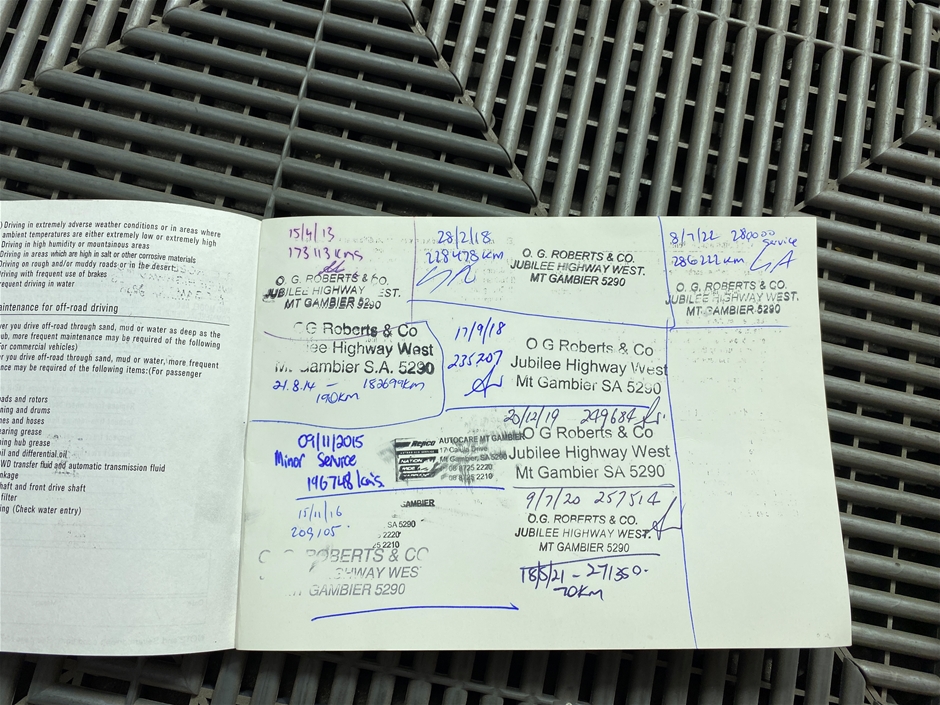 ) Driving in extremely adverse weather conditions or in areas where
ambient temperatures are either extremely low or extremely high
Driving in high humidity or mountainous areas
Driving in areas which are high in salt or other corrosive materials
Driving on rough and/or muddy roads or in the desert
Driving with frequent use of brakes
requent driving in water
aintenance for off-road driving
ver you drive off-road through sand, mud or water as deep as the
ub, more frequent maintenance may be required of the following
For commercial vehicles)
er you drive off-road through sand, mud or water, more frequent
nce may be required of the following items:(For passenger
ads and rotors
ning and drums
nes and hoses
earing grease
ning hub grease
oil and differential oil
WD transfer fluid and automatic transmission fluid
nkage
haft and front drive shaft
filter
ing (Check water entry)
15/4/13
173113 kms
O. G. ROBERTS & CO.
JUBILEE HIGHWAY EST.
MT GAMBIER 5290
O G Roberts & Co
lee Highway West
Mt. Gambier S.A. 5290
21.8.14 – 182699km
190km
09/11/2015
Minor Service
196748 kms.
Repco
AUTOCARE MT GAMBIER
Mt Gambier, SA 5290
08 8725 2220
08 8725 2210
15/11/16
209105
GAMBIER
SA 5290
2220
25 2210
O. G. ROBERTS & CO
GHWAY WES
GAMBIER 5290
28/2/18
228478 km
O. G. ROBERTS & CO.
JUBILEE HIGHWAY WEST.
MT GAMBIER 5290
17/9/18
235207
O G Roberts & Co
Jubilee Highway West
Mt Gambier SA 5290
20/12/19 249684
O G Roberts & Co
Jubilee Highway West
Mt Gambier SA 5290
9/7/20 257514
O.G. ROBERTS & CO.
JUBILEE HIGHWAY WEST.
MT GAMBIER 5290
18/5/21 – 271350.
70km
8/7/22 280000
service
286222 km
O. G. ROBERTS & CO.
JUBILEE HIGHWAY WEST.
MT GAMBIER 5290